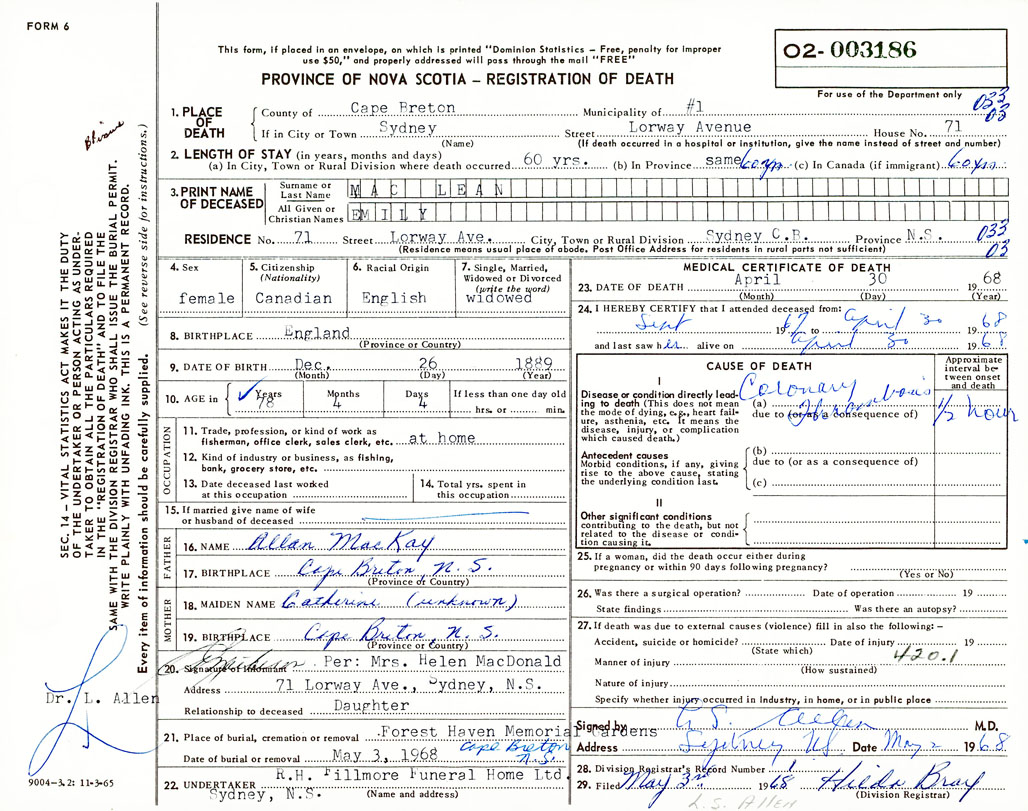 FORM 6
This form, if placed in an envelope, on which is printed "Dominion Statistics – Free, penalty for improper
use $50," and properly addressed will pass through the mail "FREE"
PROVINCE OF NOVA SCOTIA – REGISTRATION OF DEATH
02-003186
For use of the Department only
033
03
1. PLACE OF DEATH
County of Cape Breton Municipality of #1
If in City or Town Sydney Street Lorway Avenue House No. 71
(Name) (If death occurred in a hospital or institution, give the name instead of street and number)
2. LENGTH OF STAY (in years, months and days)
(a) In City, Town or Rural Division where death occurred 60 yrs. (b) In Province same 60 yrs (c) In Canada (if immigrant) 60 yrs
3. PRINT NAME OF DECEASED
Surname or Last Name MAC LEAN
All Given or Christian Names EMILY
RESIDENCE No. 71 Street Lorway Ave. City, Town or Rural Division Sydney C.B. Province N.S.
(Residence means usual place of abode. Post Office Address for residents in rural parts not sufficient)
033
03
4. Sex
female
5. Citizenship
(Nationality)
Canadian
6. Racial Origin
English
7. Single, Married,
Widowed or Divorced
(write the word)
widowed
8. BIRTHPLACE England
(Province or Country)
9. DATE OF BIRTH Dec. 26 1889
(Month) (Day) (Year)
10. AGE in Years 78 Months 4 Days 4 If less than one day old
hrs. or min.
OCCUPATION
11. Trade, profession, or kind of work as
fisherman, office clerk, sales clerk, etc. at home
12. Kind of industry or business, as fishing,
bank, grocery store, etc.
13. Date deceased last worked
at this occupation
14. Total yrs. spent in
this occupation
15. If married give name of wife
or husband of deceased
FATHER
16. NAME Allan MacKay
17. BIRTHPLACE Cape Breton, N.S.
(Province or Country)
MOTHER
18. MAIDEN NAME Catherine (unknown)
19. BIRTHPLACE Cape Breton, N.S.
(Province or Country)
20. Signature of Informant Per: Mrs. Helen MacDonald
Address 71 Lorway Ave., Sydney, N.S.
Relationship to deceased Daughter
21. Place of burial, cremation or removal Forest Haven Memorial Gardens
Cape Breton
N.S.
Date of burial or removal May 3, 1968
22. UNDERTAKER R.H. Fillmore Funeral Home Ltd.
Sydney, N.S. (Name and address)
MEDICAL CERTIFICATE OF DEATH
23. DATE OF DEATH April 30 1968
(Month) (Day) (Year)
24. I HEREBY CERTIFY that I attended deceased from:
Sept 1967 to April 30 1968
and last saw her alive on April 30 1968
CAUSE OF DEATH
Approximate interval between onset and death
I
Disease or condition directly leading to death (This does not mean the mode of dying, e.g., heart failure, asthenia, etc. It means the disease, injury, or complication which caused death.)
(a) Coronary Thrombosis 1/2 hour
due to (or as a consequence of)
Antecedent causes
Morbid conditions, if any, giving rise to the above cause, stating the underlying condition last.
(b)
due to (or as a consequence of)
(c)
II
Other significant conditions
contributing to the death, but not related to the disease or condition causing it.
25. If a woman, did the death occur either during
pregnancy or within 90 days following pregnancy?
(Yes or No)
26. Was there a surgical operation? Date of operation 19
State findings Was there an autopsy?
27. If death was due to external causes (violence) fill in also the following:–
Accident, suicide or homicide? Date of injury 19
(State which)
420.1
Manner of injury
(How sustained)
Nature of injury
Specify whether injury occurred in Industry, in home, or in public place
Signed by L.S. Allen M.D.
Address Sydney NS Date May 2 1968
28. Division Registrar's Record Number 1
29. Filed May 3rd 1968 Hilda Bray
(Division Registrar)
L.S. ALLEN
SEC. 14 – VITAL STATISTICS ACT MAKES IT THE DUTY
OF THE UNDERTAKER OR PERSON ACTING AS UNDER-
TAKER TO OBTAIN ALL THE PARTICULARS REQUIRED
IN THE "REGISTRATION OF DEATH" AND TO FILE THE
SAME WITH THE DIVISION REGISTRAR WHO SHALL ISSUE THE BURIAL PERMIT.
WRITE PLAINLY WITH UNFADING INK. THIS IS A PERMANENT RECORD.
Every item of information should be carefully supplied. (See reverse side for instructions.)
Dr. L. Allen
9004–3.2: 11-3-65